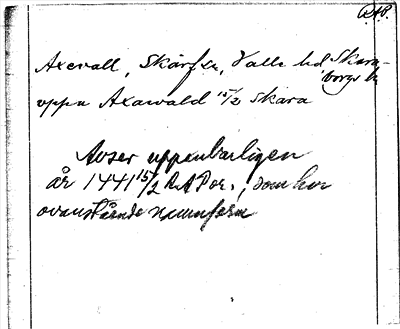 RAP.
Axevall, Skärfs, Valle hd, Skara-
borgs l.
uppu Axawald 15/2 Skara
Avser uppenbarligen
år 1441 15/2 RAPor., som har
ovanstående namnform